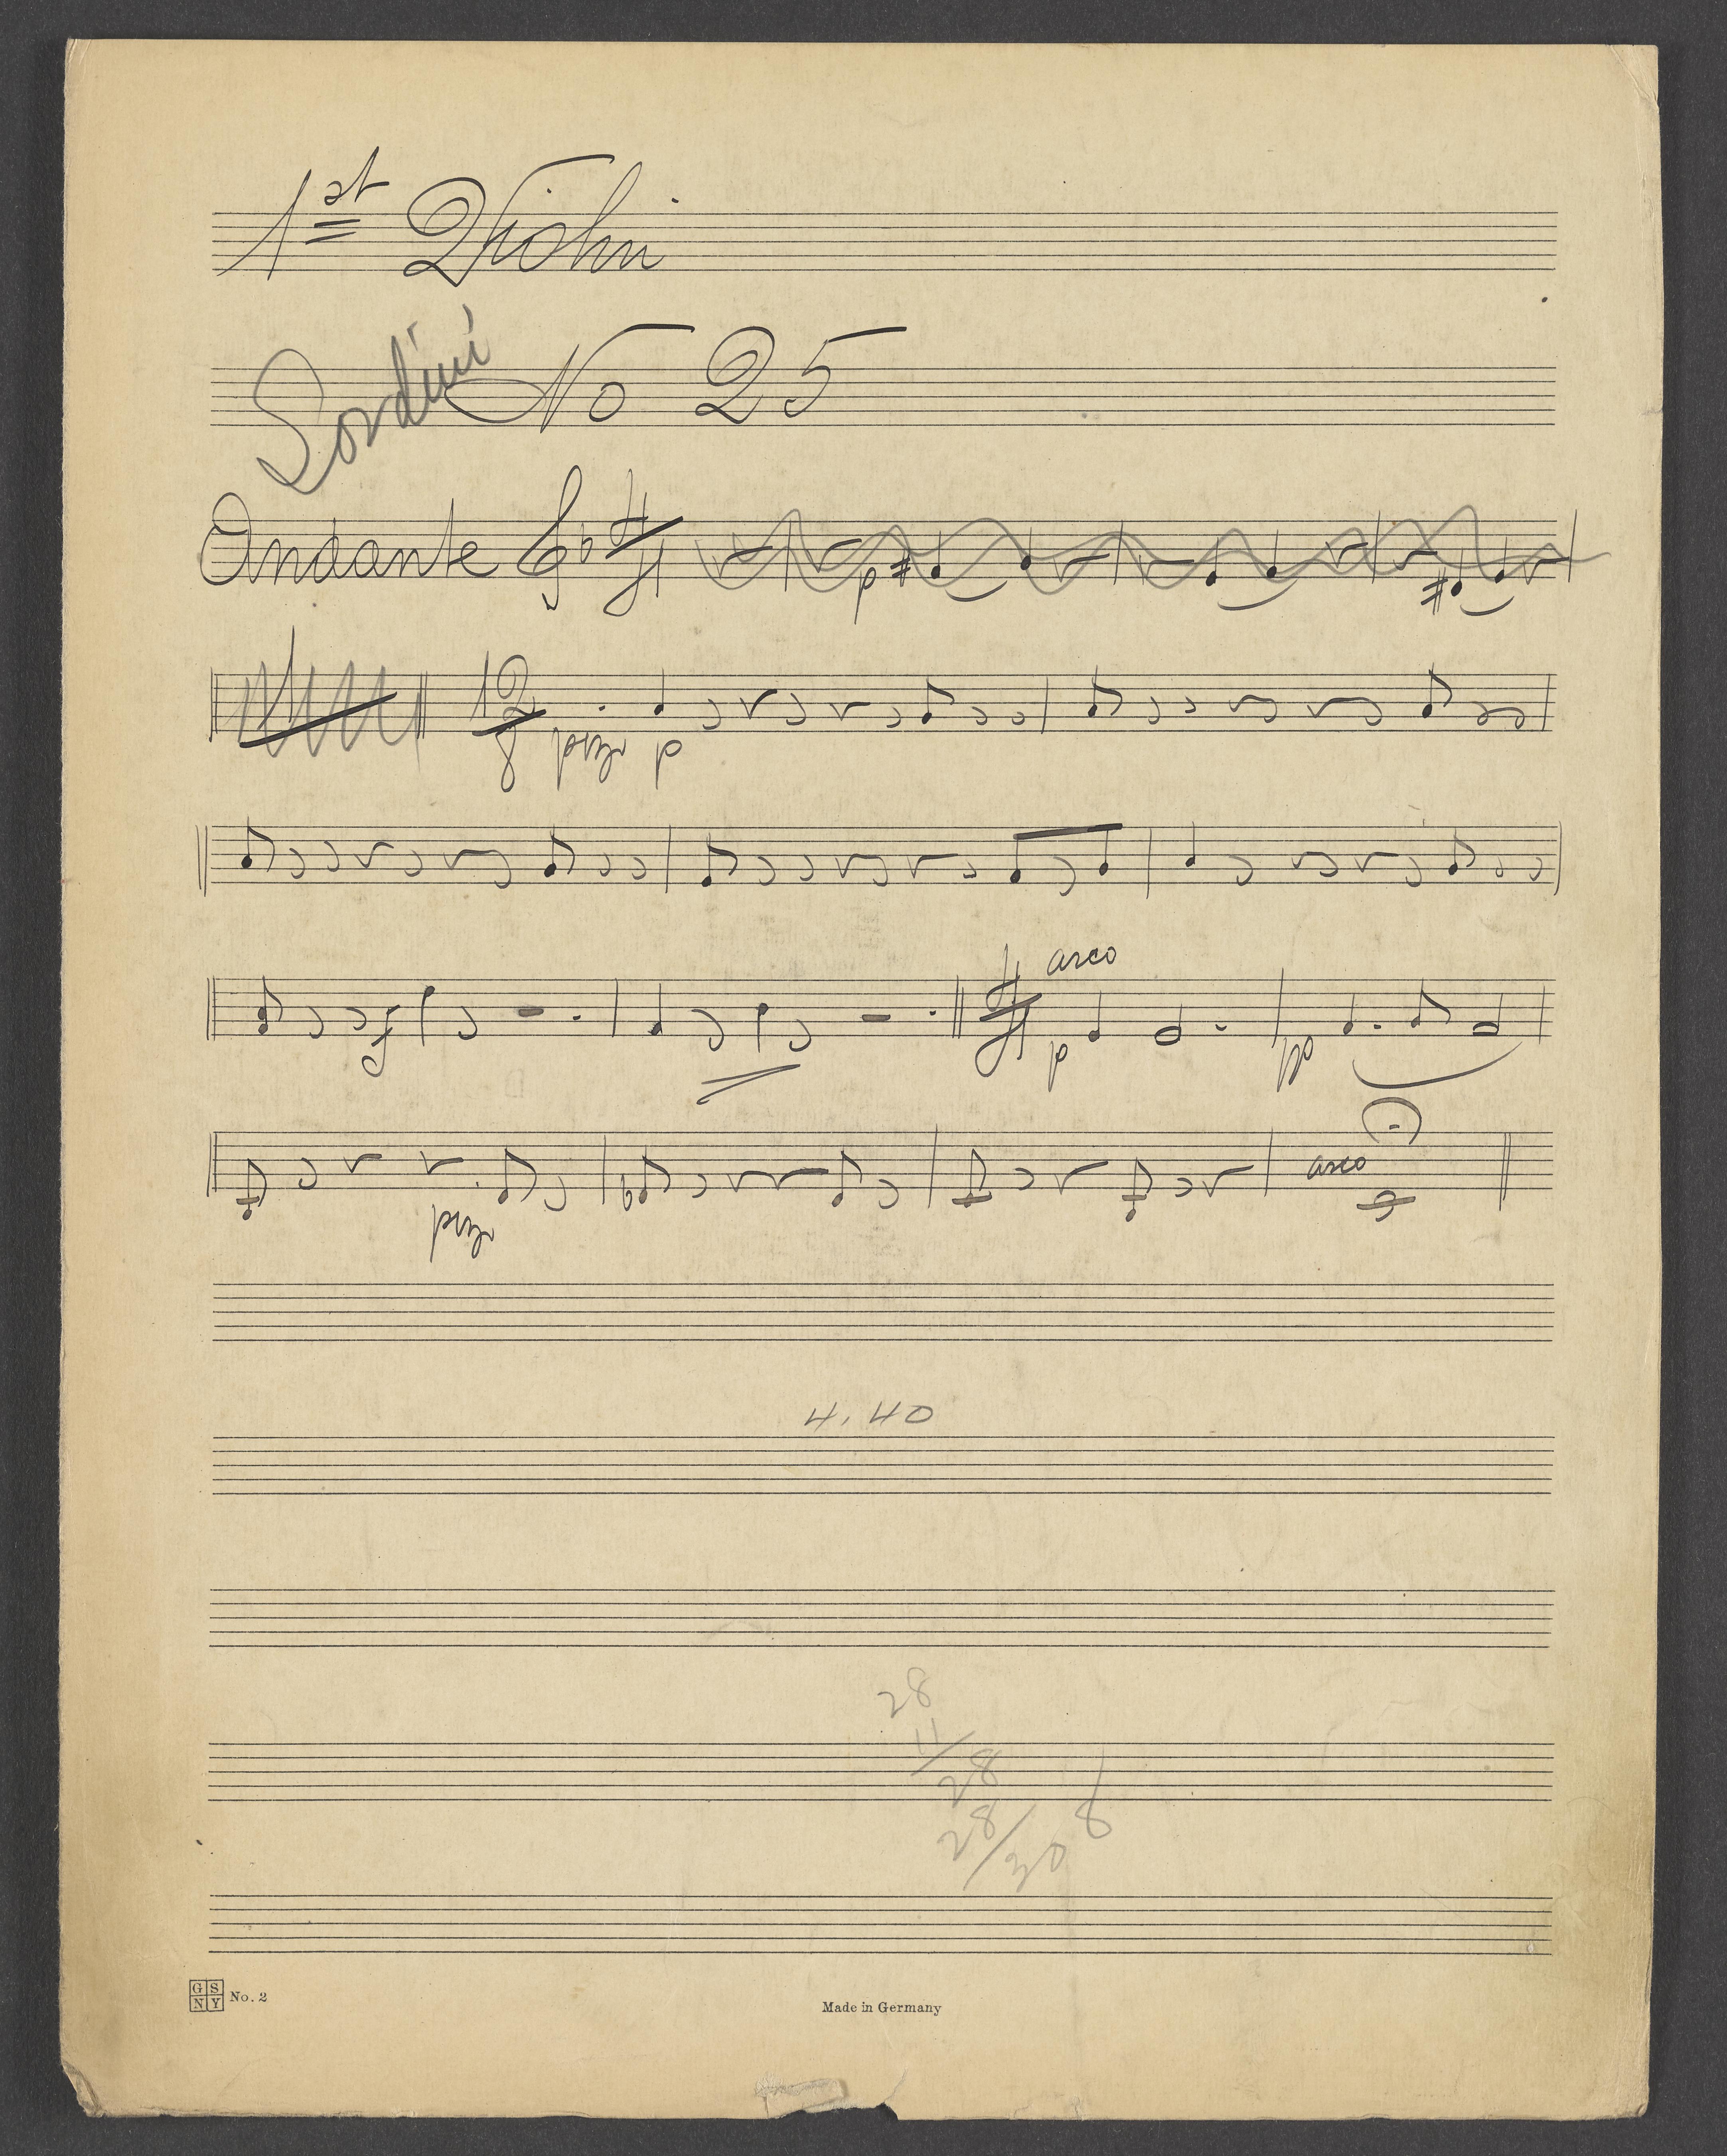 1st Violin
Sordini No 25
Andante 4/4
p
12/8 pizz p
f arco
4/4 p pp
pizz arco
4.40
28
11
28
28
30 8
GS
NY No. 2
Made in Germany